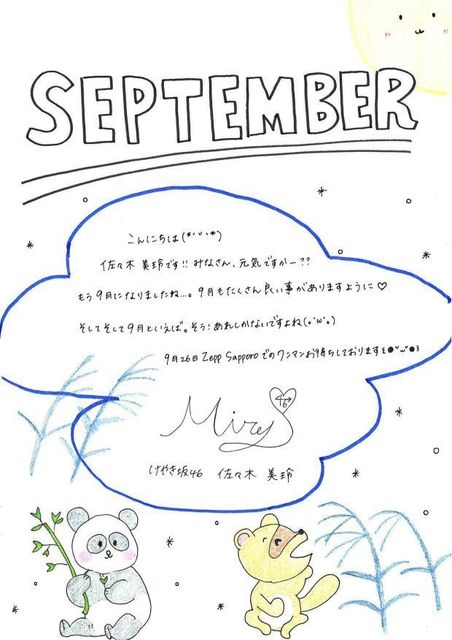 SEPTEMBER
こんにちは(*˙ᵕ˙*)
佐々木 美玲です!! みなさん、元気ですかー??
もう9月になりましたね…。9月もたくさん良い事がありますように♡
そしてそして9月といえば。そう!あれしかないですよね(。˙ω˙。)
9月26日 Zepp Sapporoでのワンマンお待ちしております
Mirey
46
けやき坂46 佐々木 美玲